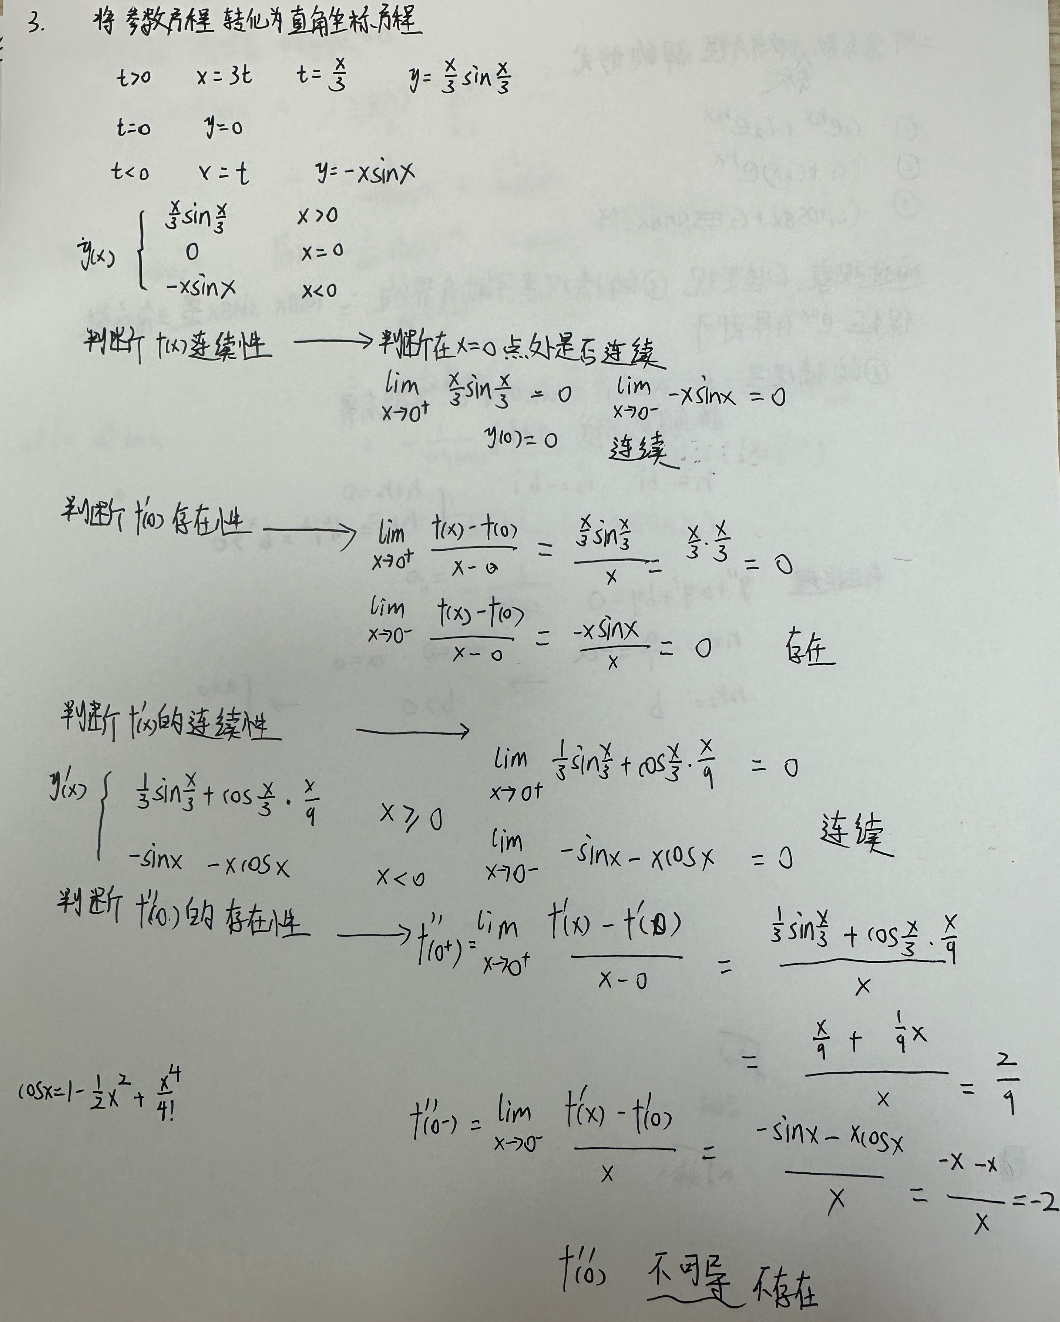 3. 将参数方程转化为直角坐标方程
t>0 x=3t t=x/3 y=x/3 sin x/3
t=0 y=0
t<0 x=t y=-xsinx
y(x) { x/3 sin x/3 x>0
0 x=0
-xsinx x<0
判断f(x)连续性 ⟶ 判断在x=0点处是否连续
lim x→0⁺ x/3 sin x/3 = 0 lim x→0⁻ -xsinx = 0
y(0)=0 连续
判断f'(0)存在性 ⟶ lim x→0⁺ (f(x)-f(0))/(x-0) = (x/3 sin x/3)/x = x/3·x/3 = 0
lim x→0⁻ (f(x)-f(0))/(x-0) = (-xsinx)/x = 0 存在
判断f'(x)的连续性 ⟶ lim x→0⁺ 1/3 sin x/3 + cos x/3 · x/9 = 0
y'(x) { 1/3 sin x/3 + cos x/3 · x/9 x≥0
-sinx -xcosx x<0
lim x→0⁻ -sinx - xcosx = 0 连续
判断f''(0)的存在性 ⟶ f''(0⁺) = lim x→0⁺ (f'(x)-f'(0))/(x-0) = (1/3 sin x/3 + cos x/3 · x/9)/x
= (x/9 + 1/9 x)/x = 2/9
cosx=1-1/2 x² + x⁴/4!
f''(0⁻) = lim x→0⁻ (f'(x)-f'(0))/x = (-sinx - xcosx)/x = (-x-x)/x = -2
f''(0) 不可导 不存在